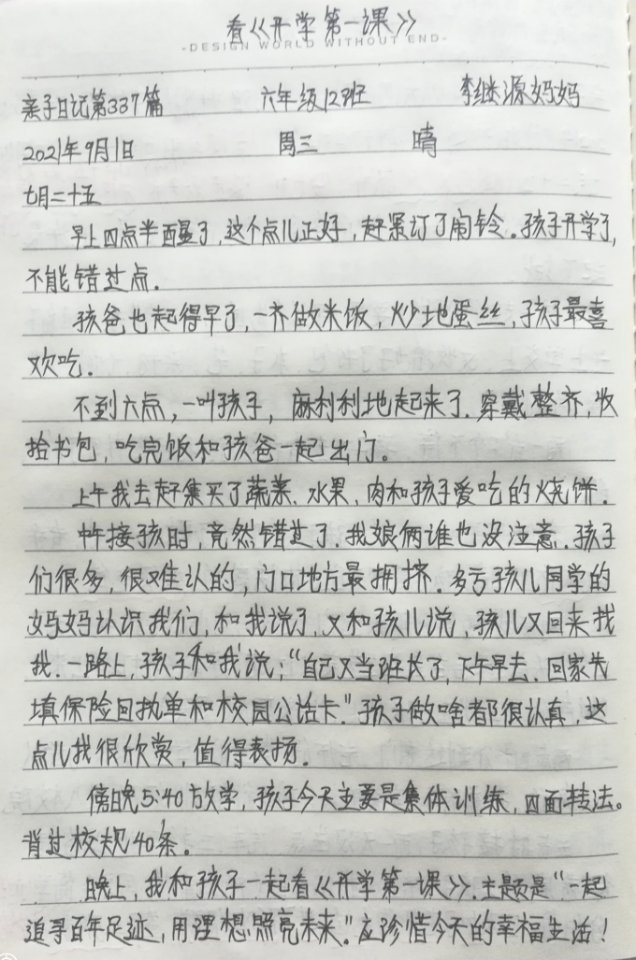 看《开学第一课》
-DESIGN WORLD WITHOUT END-
亲子日记第337篇 六年级12班 李继源妈妈
2021年9月1日 周三 晴
七月二十五
早上四点半醒了,这个点儿正好,赶紧订了闹铃.孩子开学了,
不能错过点.
孩爸也起得早了,一齐做米饭,炒地蛋丝,孩子最喜
欢吃.
不到六点,一叫孩子,麻利利地起来了.穿戴整齐,收
拾书包,吃完饭和孩爸一起出门。
上午我去赶集买了蔬菜、水果、肉和孩子爱吃的烧饼.
接孩时,竟然错过了.我娘俩谁也没注意.孩子
们很多,很难认的,门口地方最拥挤.多亏孩儿同学的
妈妈认识我们,和我说了,又和孩儿说,孩儿又回来找
我.一路上,孩子和我说:“自己又当班长了,下午早去.回家先
填保险回执单和校园公话卡.”孩子做啥都很认真,这
点儿我很欣赏,值得表扬.
傍晚5:40放学,孩子今天主要是集体训练,四面转法。
背过校规40条。
晚上,我和孩子一起看《开学第一课》.主题是“一起
追寻百年足迹,用理想照亮未来.”应珍惜今天的幸福生活!